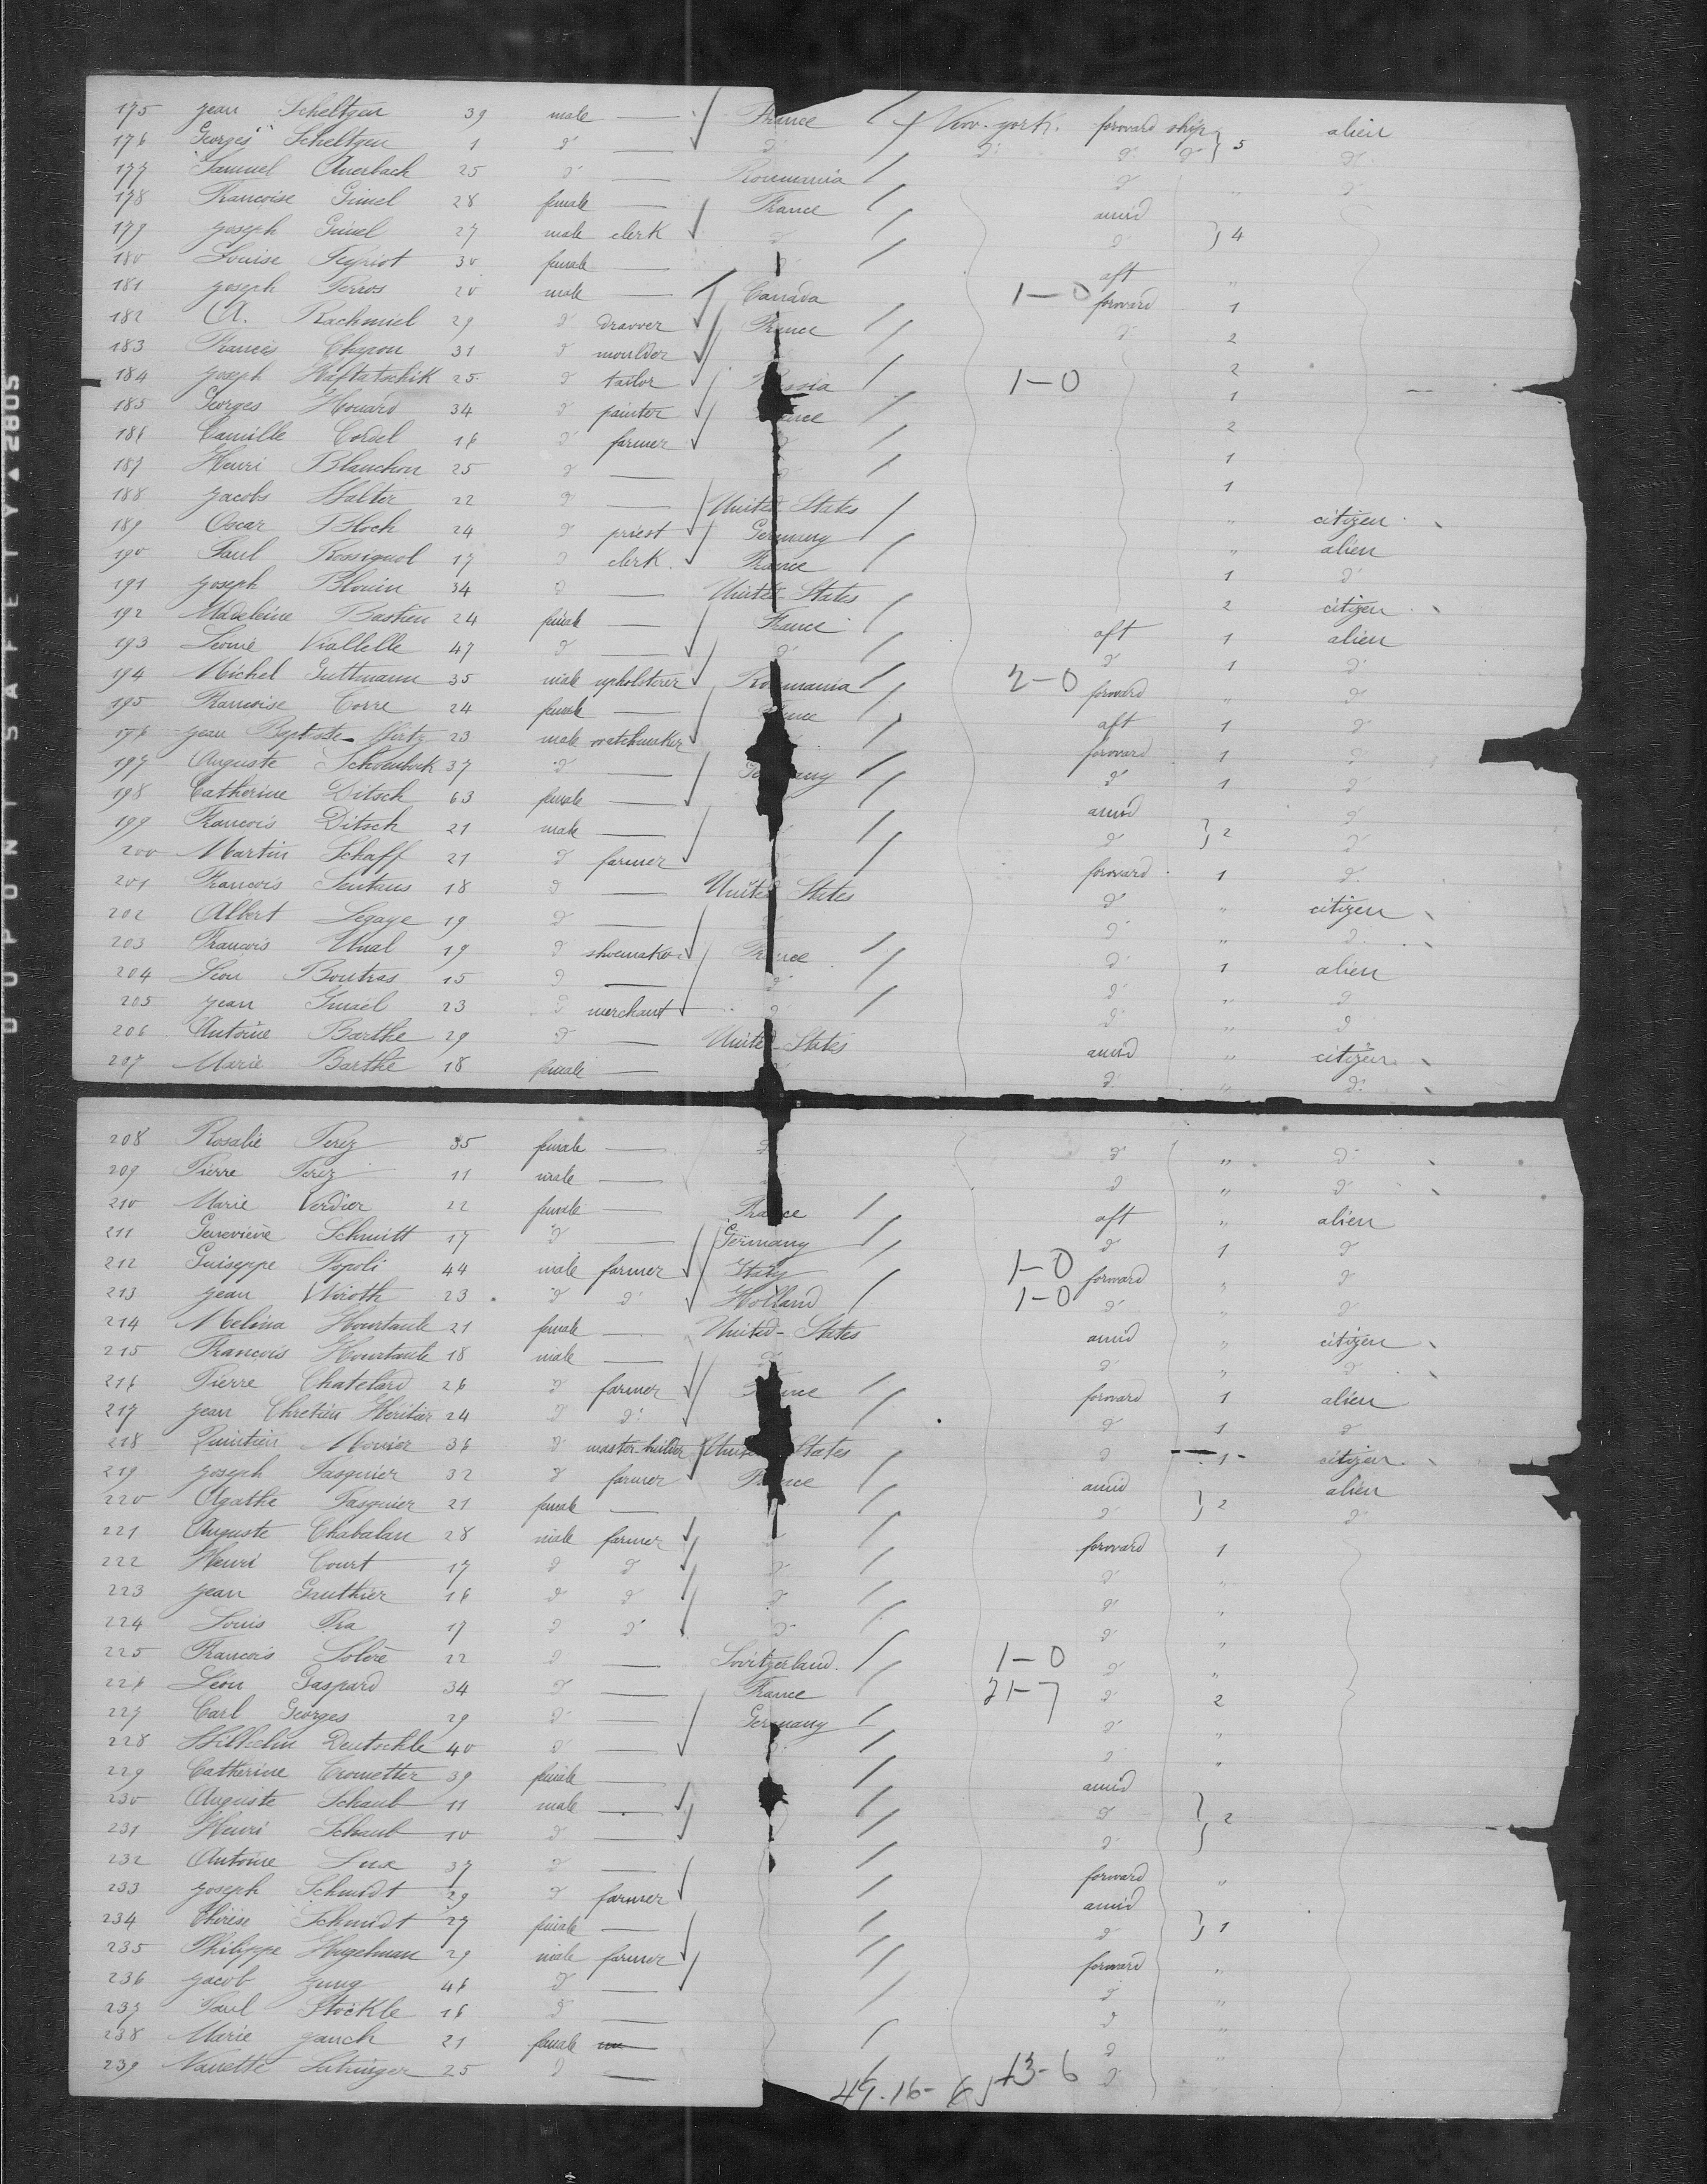 175 Jean Scheltzen 39 male — France New-york. forward ship 5 alien
176 Georges Scheltzen 1 d° — d° d° d° d° d°
177 Samuel Auerbach 25 d° — Roumania d° " d°
178 Francoise Gimel 28 female — France amid
179 Joseph Gimel 27 male clerk d° d° 4
180 Louise 30 female — d° aft "
181 Joseph Perros 20 male — Canada 1-0 forward 1
182 A. Rachmiel 29 d° drawer France d° 2
183 Francis Chapon 31 d° moulder 2
184 Joseph Haftatschik 25 d° tailor Russia 1-0 1
185 Georges Houard 34 d° painter France 2
186 Camille Cordel 16 d° farmer d° 1
187 Henri Blanchon 25 d° — d° 1
188 Jacobs Walter 22 d° — United States " citizen
189 Oscar Bloch 24 d° priest Germany " alien
190 Paul Rossignol 17 d° clerk France 1 d°
191 Joseph Blouin 34 d° — United-States 2 citizen
192 Madeleine Bastien 24 female — France aft 1 alien
193 Leonie Viallelle 47 d° — d° d° 1 d°
194 Michel Guttmann 35 male upholsterer Roumania 2-0 forward " d°
195 Francoise Corre 24 female — France aft 1 d°
196 Jean Baptiste Hertz 23 male watchmaker forward 1 d°
197 Auguste Schoenbock 37 d° — Germany d° 1 d°
198 Catherine Ditsch 63 female — amid d°
199 Francois Ditsch 21 male — d° 2 d°
200 Martin Schaff 21 d° farmer forward 1 d°
201 Francois Sentaus 18 d° — United States d° " citizen
202 Albert Legaye 19 d° — d° " d°
203 Francois Unal 19 d° shoemaker France d° 1 alien
204 Leon Boutras 15 d° — d° d° " d°
205 Jean 23 d° merchant d° d° " d°
206 Antoine Barthe 29 d° — United-States amid " citizen
207 Marie Barthe 18 female — d° " d°
208 Rosalie Perez 35 female — d° d° " d°
209 Pierre Perez 11 male — d° " d°
210 Marie Verdier 22 female — France aft " alien
211 Genevieve Schmitt 17 d° — Germany d° 1 d°
212 Guiseppe Topoli 44 male farmer Italy 1-0 forward " d°
213 Jean Wiroth 23 d° d° Holland 1-0 d° " d°
214 Melina Hourtaule 21 female — United-States amid " citizen
215 Francois Hourtaule 18 male — d° d° " d°
216 Pierre Chatelard 26 d° farmer France forward 1 alien
217 Jean Chretien Heritier 24 d° d° d° 1 d°
218 Quintien Movier 36 d° master-builder United States d° 1 citizen
219 Joseph Pasquier 32 d° farmer France amid alien
220 Agathe Pasquier 21 female — d° 2 d°
221 Auguste Chabalan 28 male farmer d° forward 1
222 Henri Court 17 d° d° d° d° "
223 Jean Gauthier 16 d° d° d° d° "
224 Louis Pra 17 d° d° d° d° "
225 Francois Solere 22 d° — Switzerland. 1-0 d° "
226 Leon Gaspard 34 d° — France 21-7 d° 2
227 Carl Georges 29 d° — Germany d° "
228 Wilhelm Deutschle 40 d° — d° d° "
229 Catherine Crometter 39 female — amid
230 Auguste Schaub 11 male — d° 2
231 Henri Schaub 10 d° — d°
232 Antoine Lux 37 d° — forward "
233 Joseph Schmidt 29 d° farmer amid
234 Therese Schmidt 27 female — d° 1
235 Philippe Hugelman 29 male farmer forward "
236 Jacob Jung 46 d° — d° "
237 Paul Stockle 16 d° — d° "
238 Marie Jauch 21 female — d° "
239 Nanette 25 d° — d°
49-16- 13-6
DUPONT SAFETY